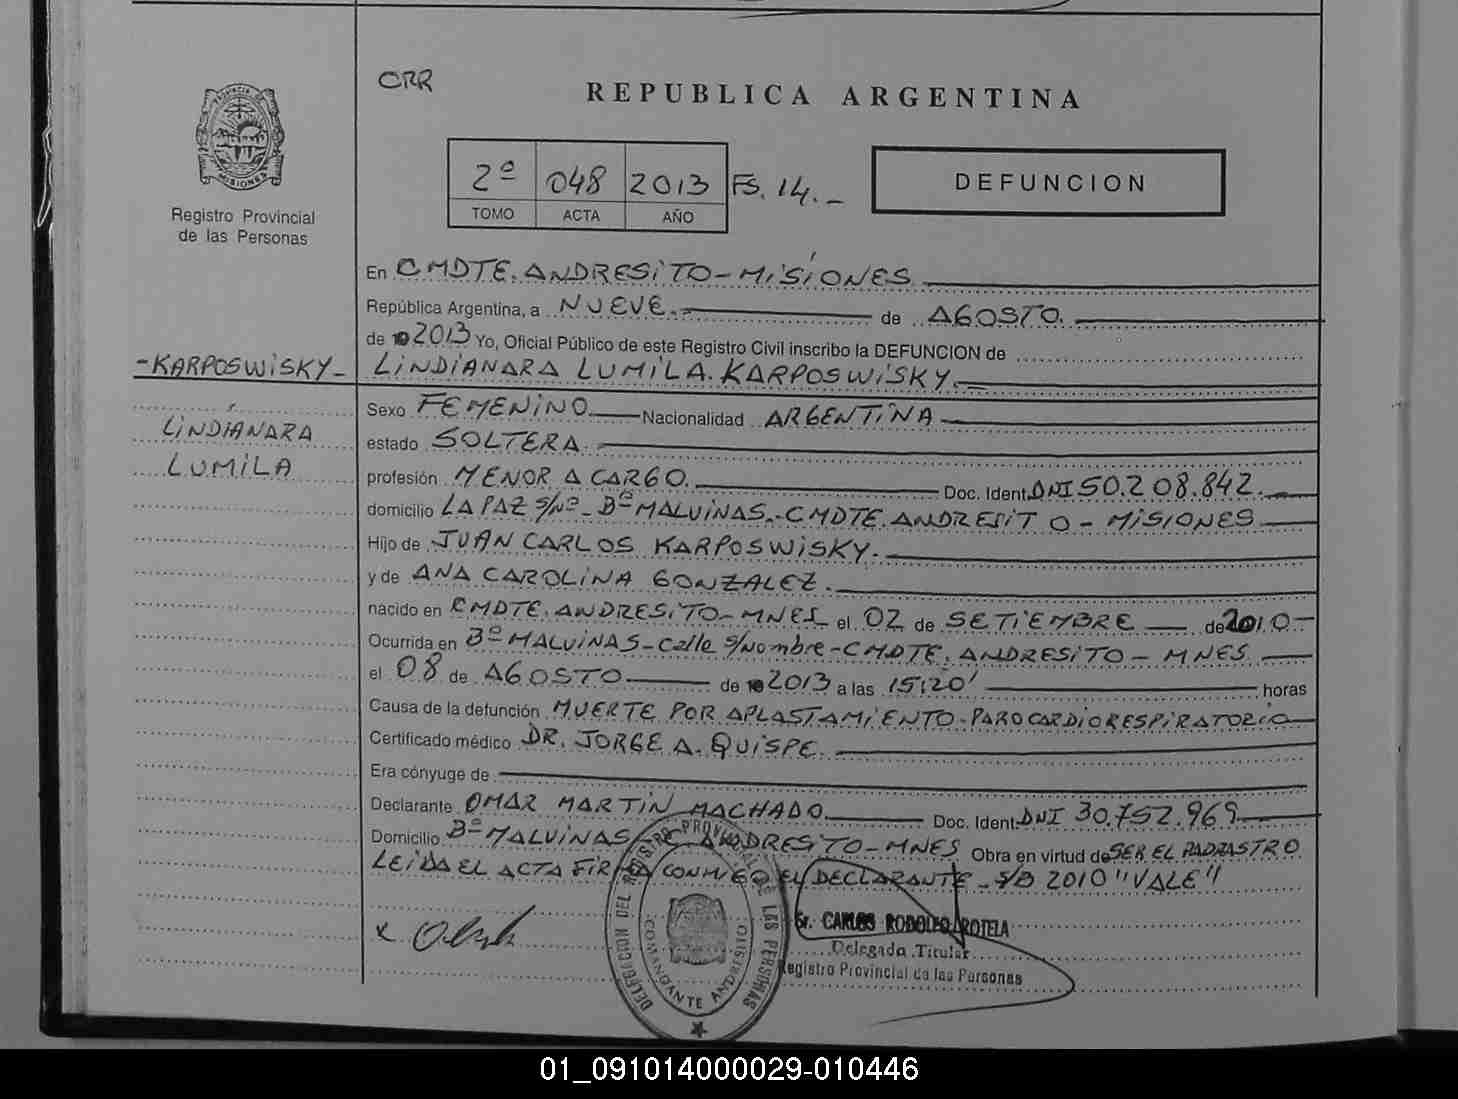 CRR
REPUBLICA ARGENTINA
PROVINCIA DE MISIONES
Registro Provincial
de las Personas
2º 048 2013 FS. 14.-
TOMO ACTA AÑO
DEFUNCION
En CMDTE. ANDRESITO - MISIONES
República Argentina, a NUEVE. de AGOSTO.
de 2013 Yo, Oficial Público de este Registro Civil inscribo la DEFUNCION de
-KARPOSWISKY-
LINDIANARA
LUMILA
LINDIANARA LUMILA. KARPOSWISKY.
Sexo FEMENINO Nacionalidad ARGENTINA
estado SOLTERA.
profesión MENOR A CARGO. Doc. Ident. DNI 50.208.842.
domicilio LA PAZ S/Nº - Bº MALVINAS.-CMDTE. ANDRESITO - MISIONES
Hijo de JUAN CARLOS KARPOSWISKY.
y de ANA CAROLINA GONZALEZ.
nacido en CMDTE. ANDRESITO - MNES el 02 de SETIEMBRE de 2010-
Ocurrida en Bº MALVINAS - Calle S/Nombre - CMDTE. ANDRESITO - MNES
el 08 de AGOSTO de 2013 a las 15:20' horas
Causa de la defunción MUERTE POR APLASTAMIENTO - PARO CARDIORESPIRATORIO
Certificado médico DR. JORGE A. QUISPE.
Era cónyuge de
Declarante OMAR MARTIN MACHADO Doc. Ident. DNI 30.752.969
Domicilio Bº MALVINAS ANDRESITO - MNES Obra en virtud de SER EL PADRASTRO
LEIDA EL ACTA FIRMA CONMIGO EL DECLARANTE - S/B 2010 "VALE"
x
Sr. CARLOS RODOLFO ROTELA
Delegado Titular
Registro Provincial de las Personas
DELEGACION DEL REGISTRO PROVINCIAL DE LAS PERSONAS
COMANDANTE ANDRESITO
01_091014000029-010446